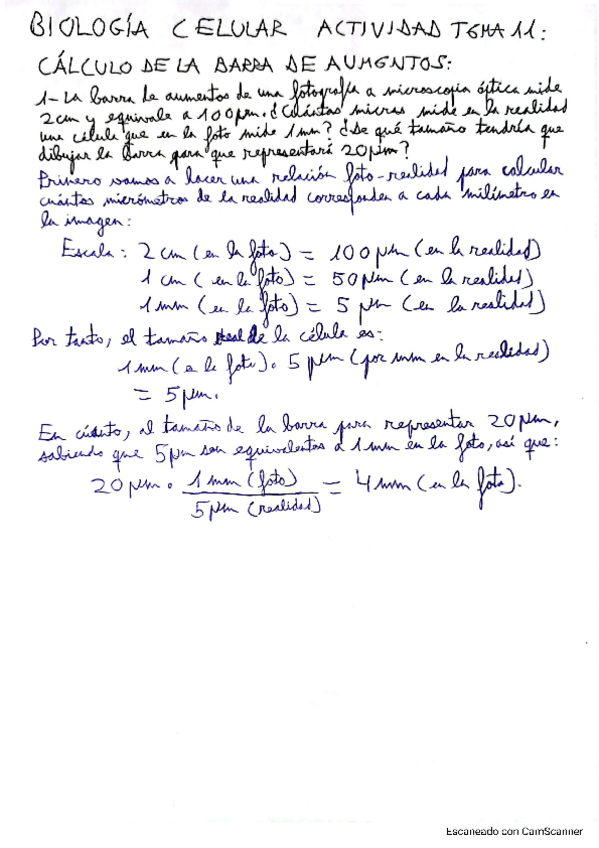 BIOLOGÍA CELULAR ACTIVIDAD TEMA 11:
CÁLCULO DE LA BARRA DE AUMENTOS:
1- La barra de aumentos de una fotografía a microscopia óptica mide
2cm y equivale a 100µm. ¿Cuántas micras mide en la realidad
una célula que en la foto mide 1mm? ¿De qué tamaño tendría que
dibujar la barra para que representará 20µm?
Primero vamos a hacer una relación foto-realidad para calcular
cuántos micrómetros de la realidad corresponden a cada milímetro en
la imagen:
Escala: 2 cm (en la foto) = 100µm (en la realidad)
1 cm (en la foto) = 50µm (en la realidad)
1mm (en la foto) = 5 µm (en la realidad)
Por tanto, el tamaño real de la célula es:
1mm (en la foto) · 5 µm (por mm en la realidad)
= 5µm.
En cuánto, al tamaño de la barra para representar 20µm,
sabiendo que 5µm son equivalentes a 1mm en la foto, así que:
20µm · 1mm (foto) / 5µm (realidad) = 4mm (en la foto).
Escaneado con CamScanner